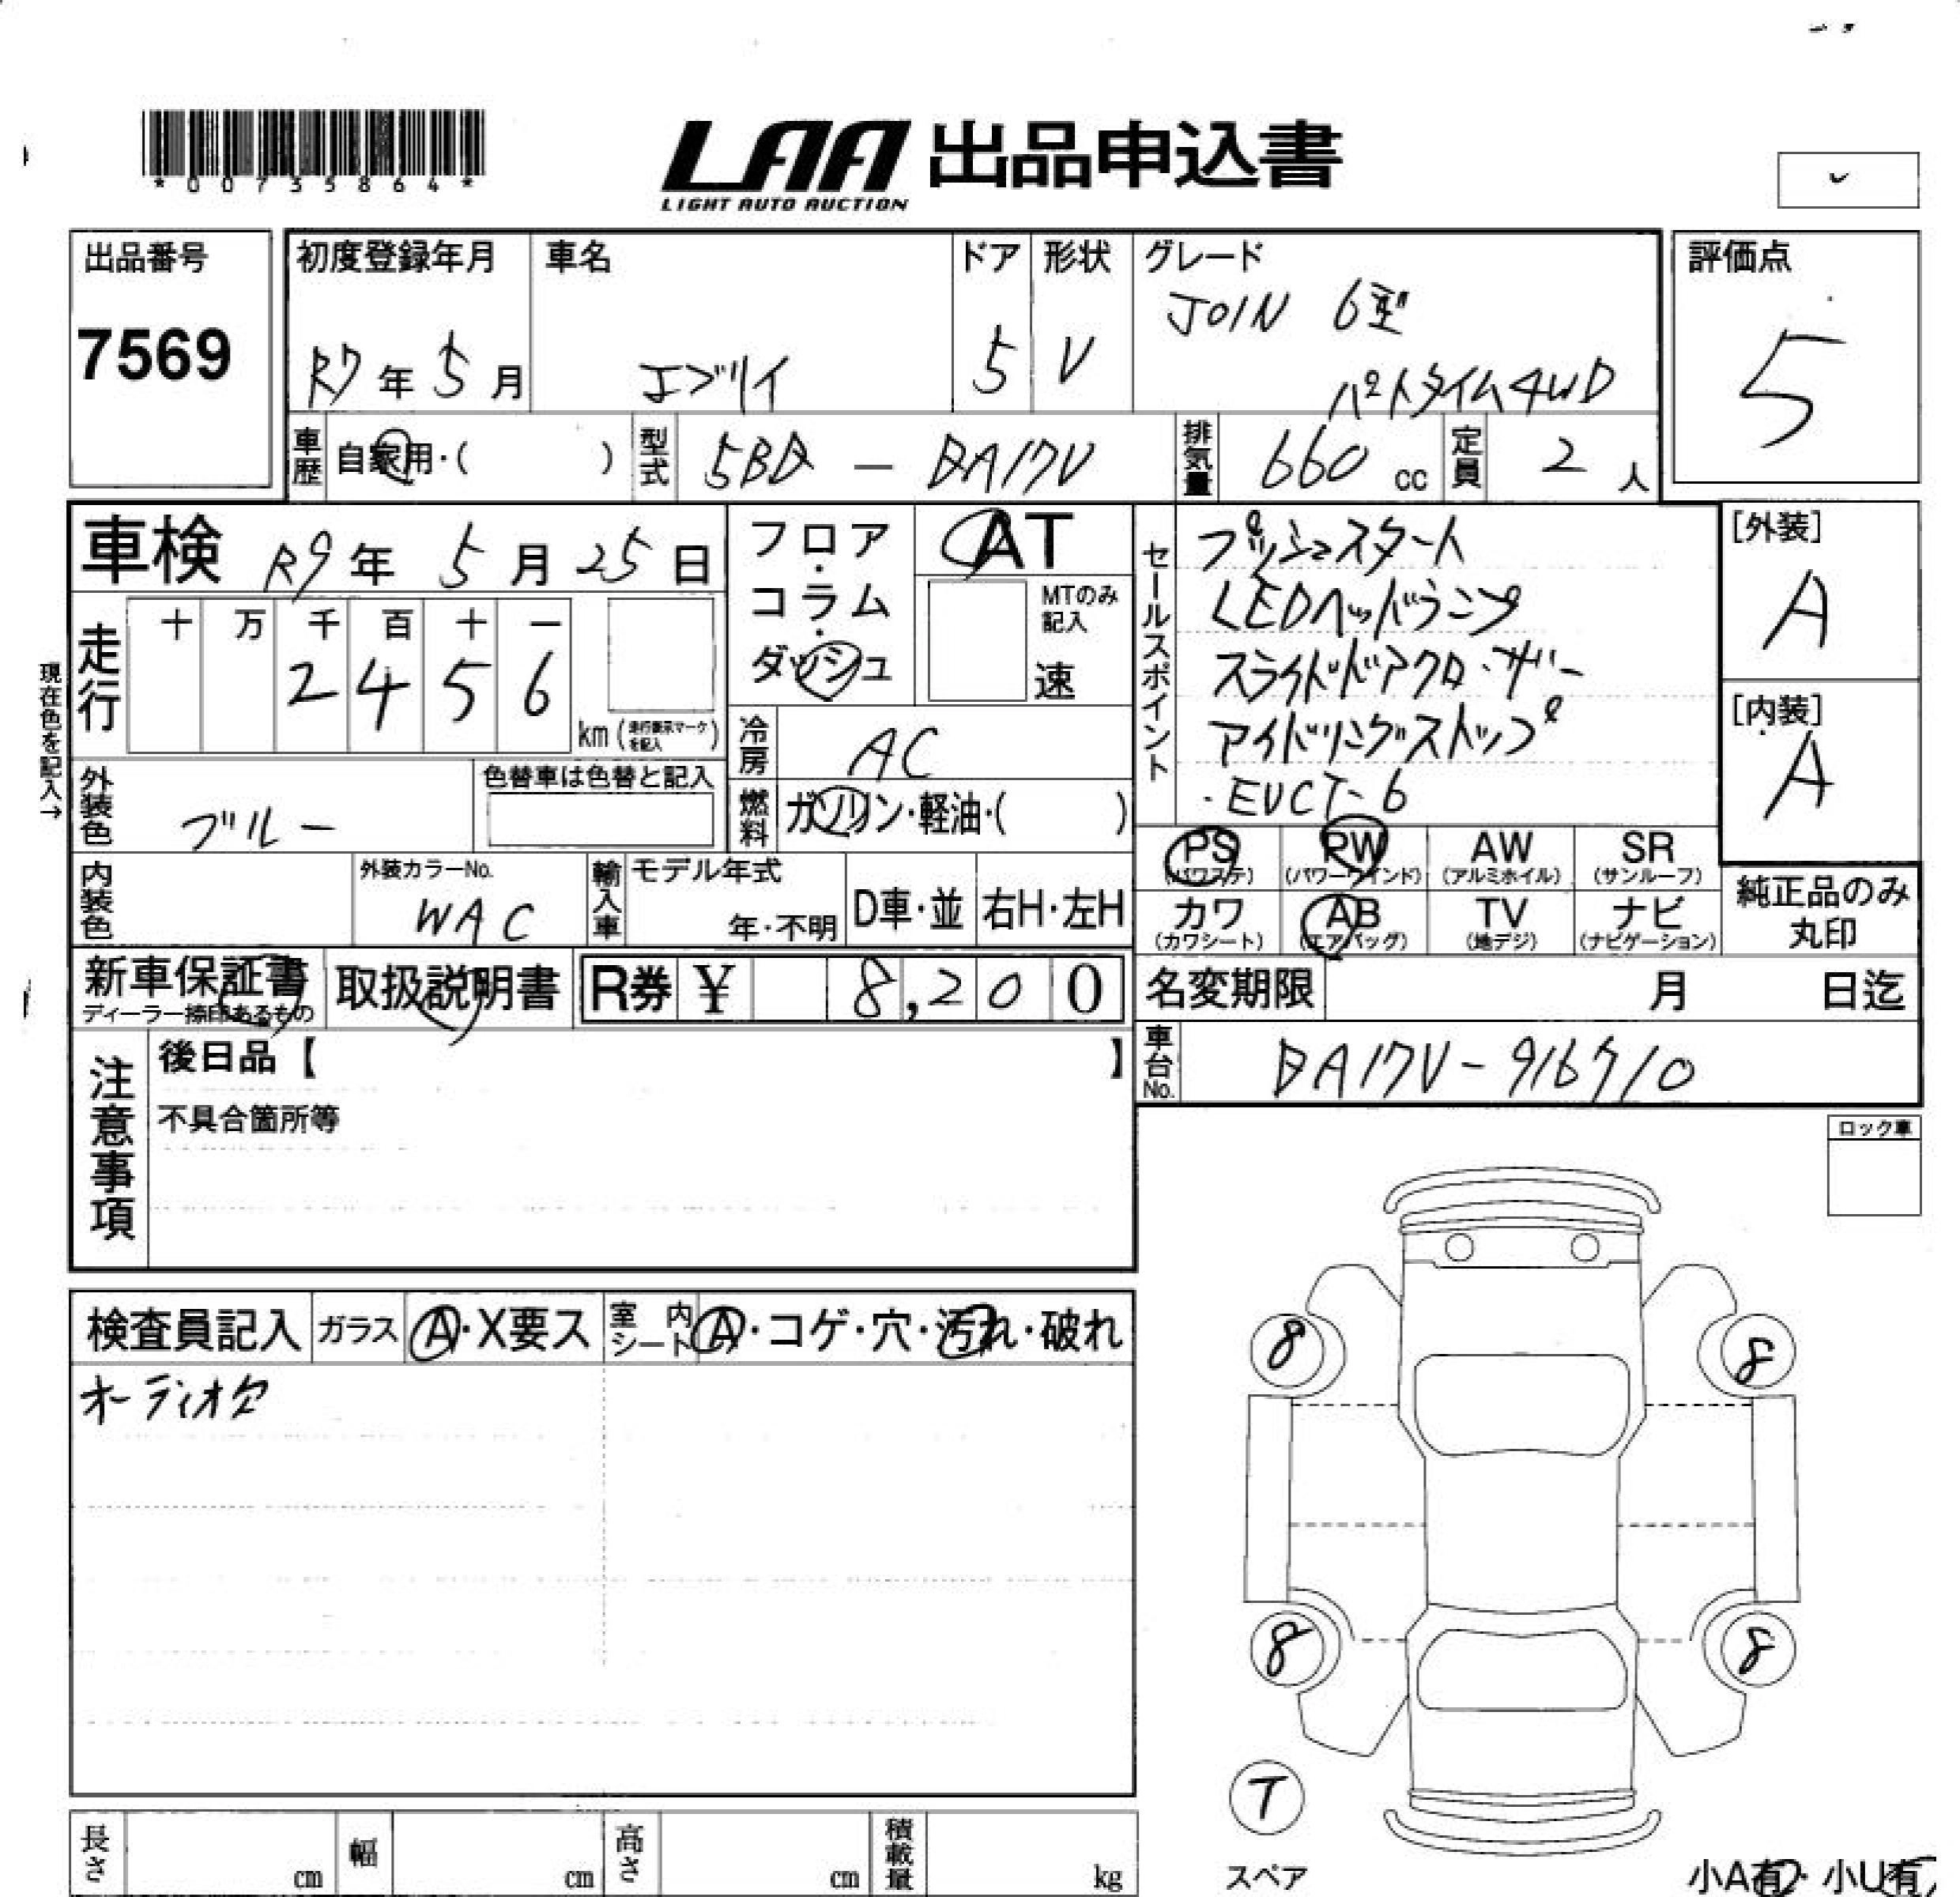 *00735864*
LAA 出品申込書
LIGHT AUTO AUCTION
出品番号
7569
初度登録年月
R7年5月
車名
エブリイ
ドア
5
形状
V
グレード
JOIN 6型
パートタイム4WD
評価点
5
車歴 自家用・( )
型式 5BD - DA17V
排気量 660 cc
定員 2 人
車検 R9年5月25日
フロア・コラム・ダッシュ
AT
MTのみ記入
速
セールスポイント
プッシュスタート
LEDヘッドランプ
スライドドアクローザー
アイドリングストップ
・EVCT-6
[外装]
A
[内装]
A
現在色を記入→
走行
十 万 千 百 十 一
2 4 5 6
km (走行表示マークを記入)
冷房 AC
燃料 ガソリン・軽油・( )
外装色 ブルー
色替車は色替と記入
内装色
外装カラーNo.
WAC
輸入車
モデル年式
年・不明
D車・並
右H・左H
PS (パワステ)
PW (パワーウインド)
AW (アルミホイル)
SR (サンルーフ)
カワ (カワシート)
AB (エアバッグ)
TV (地デジ)
ナビ (ナビゲーション)
純正品のみ
丸印
新車保証書
ディーラー捺印あるもの
取扱説明書
R券 ¥ 8,200
名変期限 月 日迄
車台No. DA17V-916710
注意事項
後日品【 】
不具合箇所等
ロック車
検査員記入
ガラス A・X要ス
室内シート A・コゲ・穴・汚れ・破れ
オーディオ欠
8 8
8 8
T
スペア
長さ cm
幅 cm
高さ cm
積載量 kg
小A有・小U有